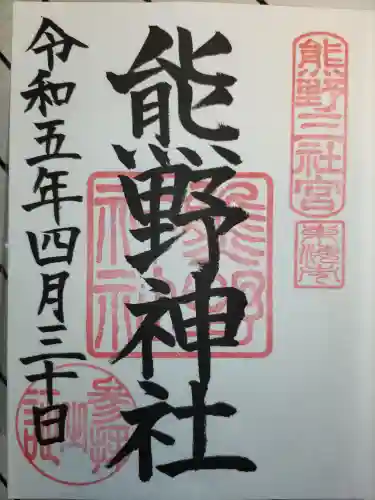 熊野三社宮
熊野神社
熊野神社
令和五年四月三十日
参拝之証